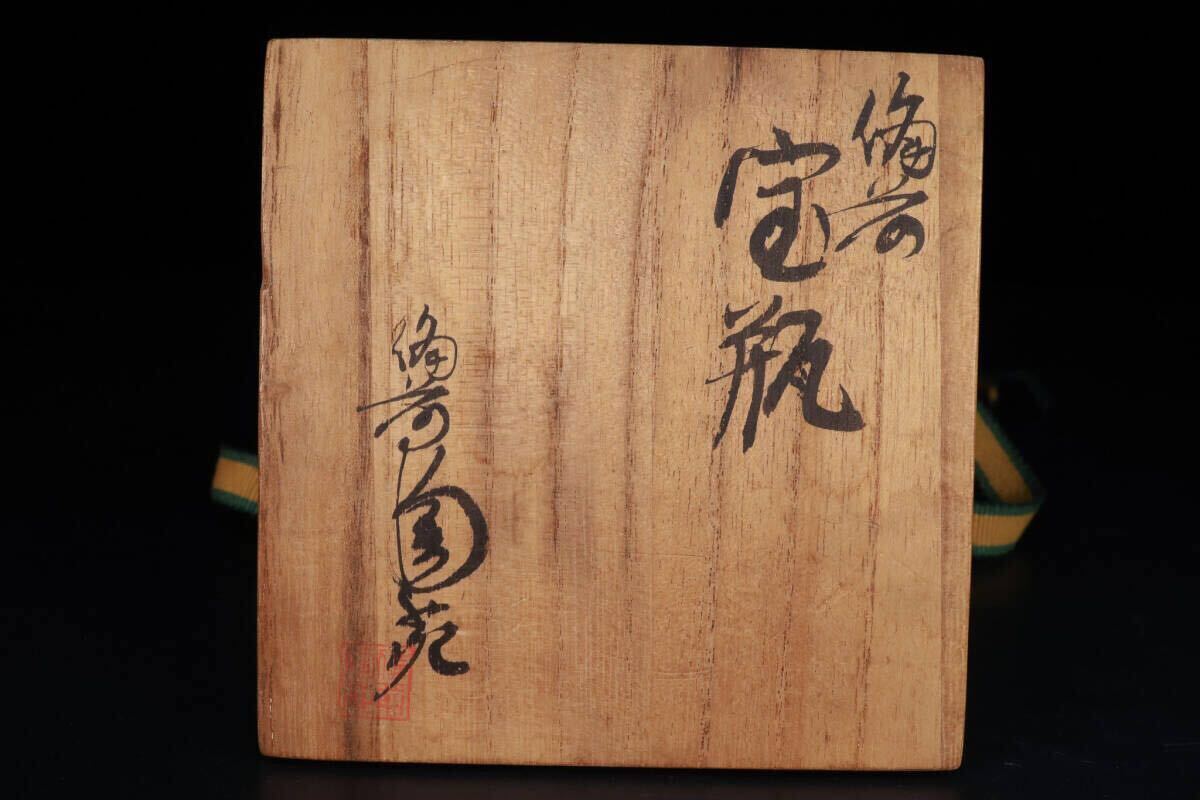 備前
宝瓶
備前陶苑